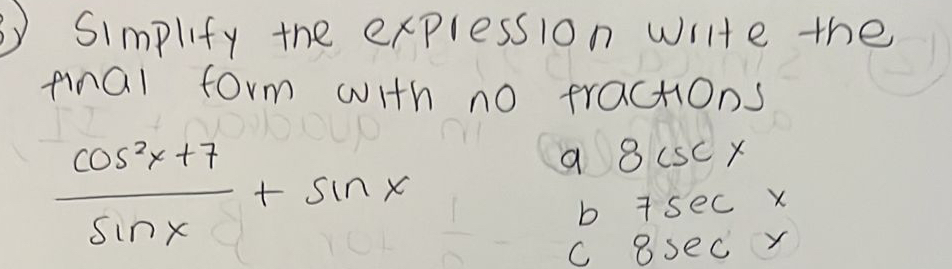 3) Simplify the expression write the
final form with no fractions
cos²x+7
sinx
+ sin x
a 8 csc x
b 7 sec x
c 8 sec x